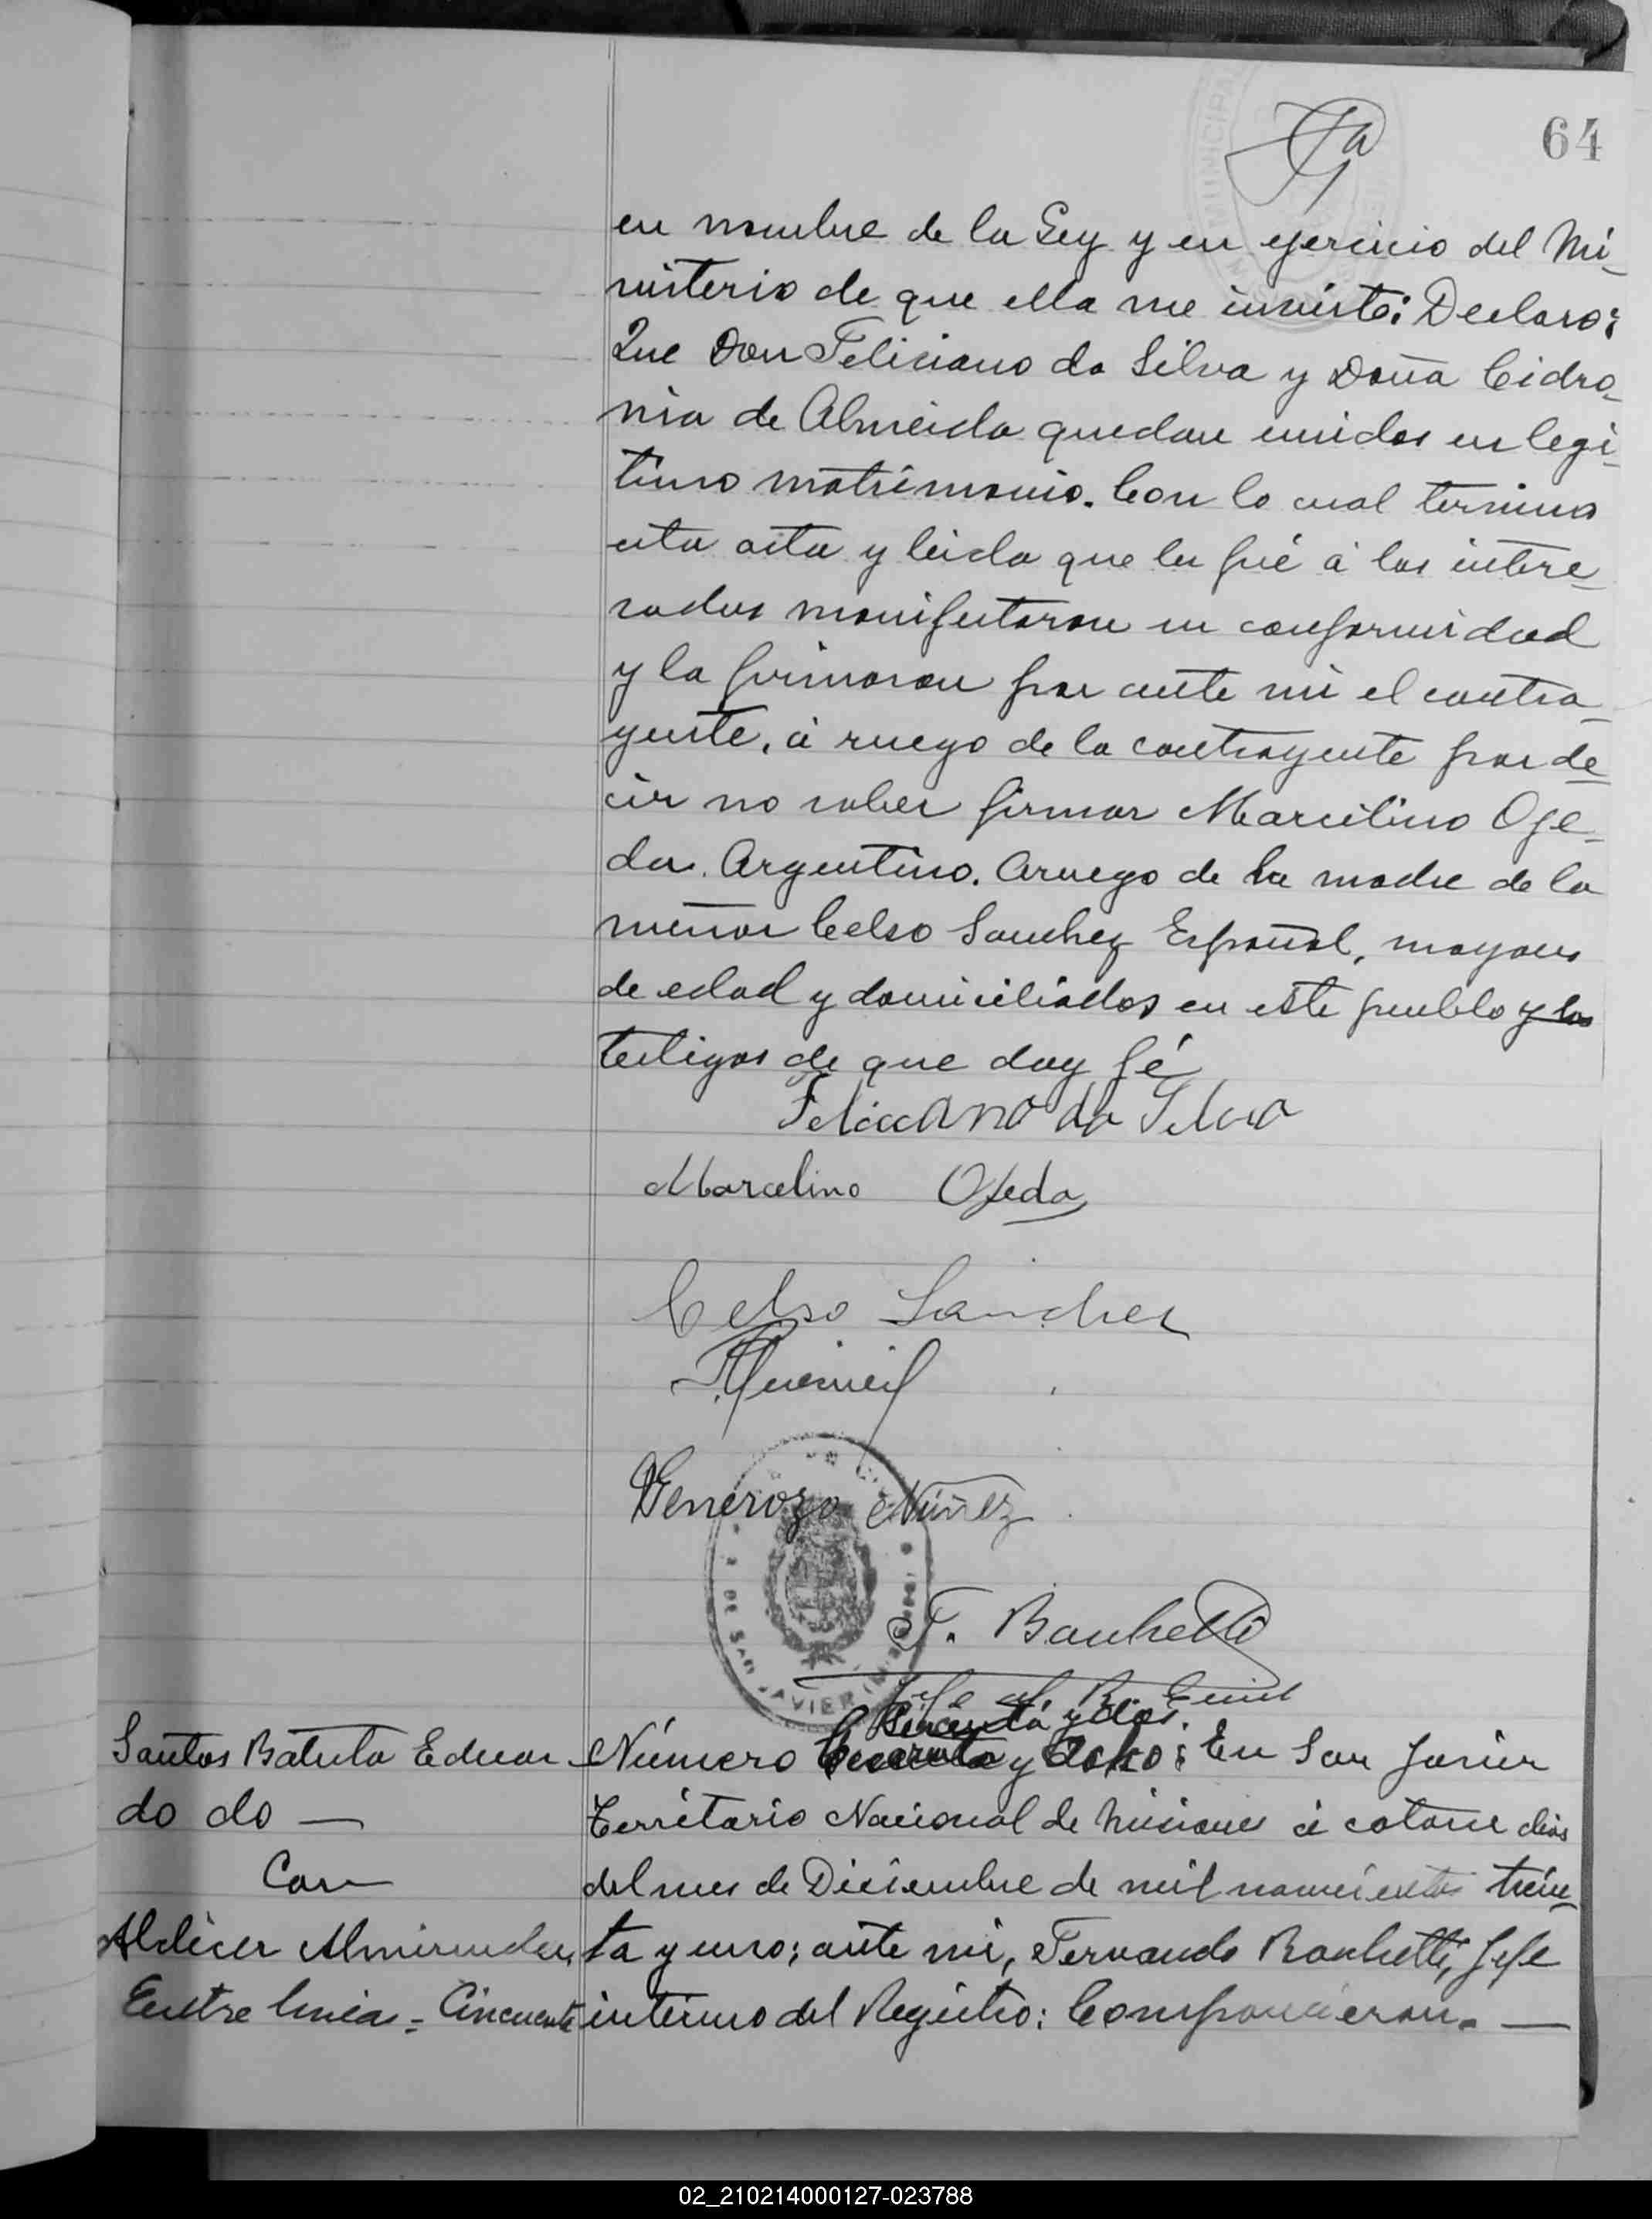 64
en nombre de la Ley y en ejercicio del Mi-
nisterio de que ella me inviste: Declaro:
Que Don Feliciano da Silva y Doña Cidro-
nia de Almeida quedan unidos en legi-
timo matrimonio. Con lo cual termino
esta acta y leida que les fué á los intere-
sados manifestaron su conformidad
y la firmaron por ante mi el contra-
yente, á ruego de la contrayente por de-
cir no saber firmar Marcelino Oje-
da. Argentino. Aruego de la madre de la
menor Celso Sanchez Español, mayores
de edad y domiciliados en este pueblo y los
testigos de que doy fé
Feliciano da Silva
Marcelino Ojeda
Celso Sanchez
Generozo Nuñez
DE SAN JAVIER
F. Banchetti
Jefe del R. Civil
Cincuenta y dos.
Santos Batista Eduar-
do do —
Con
Aldicer Almirendes,
Entre lineas = Cincuenta
Número y Ocho: En San Javier
Territorio Nacional de Misiones á catorce dias
del mes de Diciembre de mil novecientos trein-
ta y uno; ante mi, Fernando Banchetti, Jefe
interino del Registro: Comparecieron. —
02_210214000127-023788